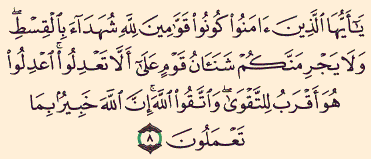 يَٰٓأَيُّهَا ٱلَّذِينَ ءَامَنُوا۟ كُونُوا۟ قَوَّٰمِينَ لِلَّهِ شُهَدَآءَ بِٱلْقِسْطِ ۖ
وَلَا يَجْرِمَنَّكُمْ شَنَـَٔانُ قَوْمٍ عَلَىٰٓ أَلَّا تَعْدِلُوا۟ ۚ ٱعْدِلُوا۟
هُوَ أَقْرَبُ لِلتَّقْوَىٰ ۖ وَٱتَّقُوا۟ ٱللَّهَ ۚ إِنَّ ٱللَّهَ خَبِيرٌۢ بِمَا
تَعْمَلُونَ ٨